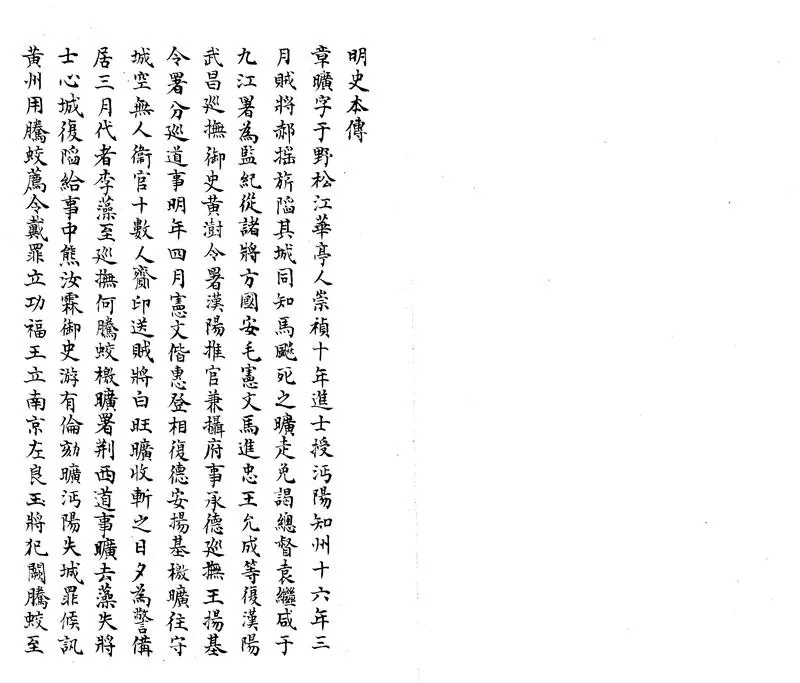 明史本傳
章曠字于野松江華亭人崇禎十年進士授沔陽知州十六年三
月賊將郝搖旂陷其城同知馬飈死之曠走免謁總督袁繼咸于
九江署為監紀從諸將方國安毛憲文馬進忠王允成等復漢陽
武昌巡撫御史黃澍令署漢陽推官兼攝府事承德巡撫王揚基
令署分巡道事明年四月憲文偕惠登相復德安揚基檄曠往守
城空無人衛官十數人齎印送賊將白旺曠收斬之日夕為警備
居三月代者李藻至巡撫何騰蛟檄曠署荆西道事曠去藻失將
士心城復陷給事中熊汝霖御史游有倫劾曠沔陽失城罪候訊
黃州用騰蛟薦令戴罪立功福王立南京左良玉將犯闕騰蛟至